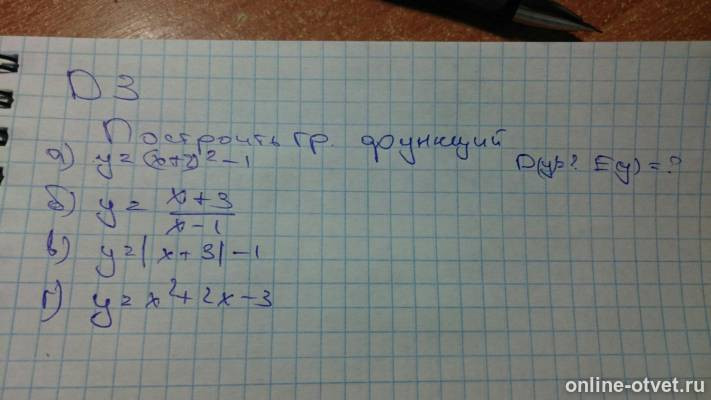 D 3
Построить гр. функций
а) y = (x+)² - 1
D(y)=? E(y) = ?
б) y = x+3 / x-1
в) y = |x+3| - 1
г) y = x² + 2x - 3
online-otvet.ru